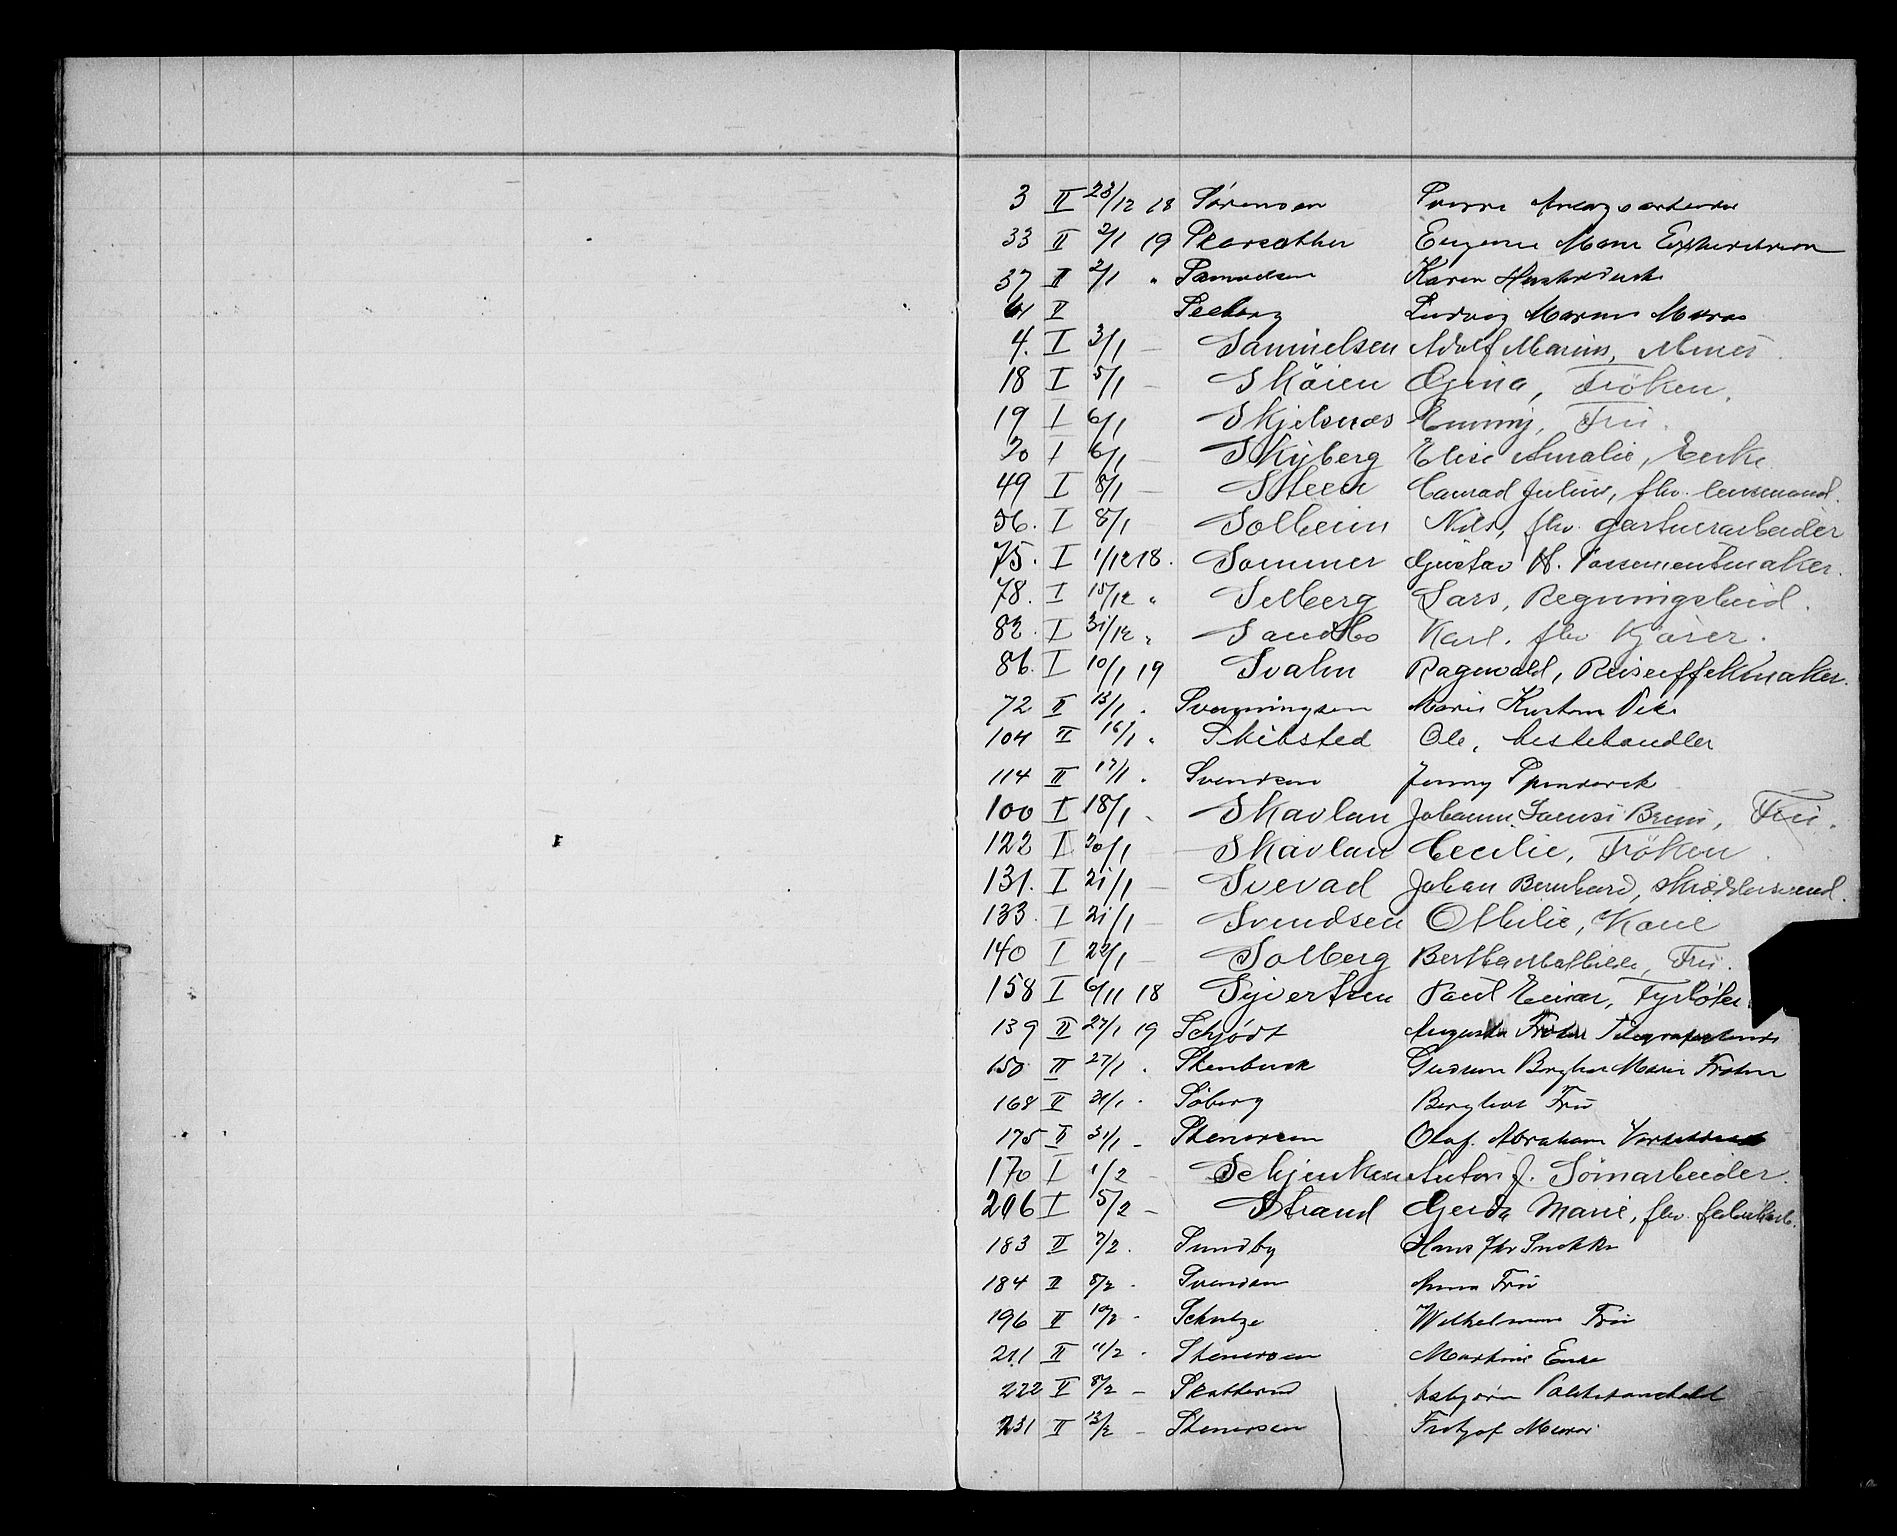 3 II 23/12 18 Sørensen
33 II 2/1 19 Skarsæther Eugenie Marie
37 II 2/1 " Samuelsen Karen
61 II Seeberg Ludvig Marius Murer
4. I 3/1 — Samuelsen Adolf Marius, Murer
18 I 5/1 — Sköien Gina, Fröken.
19 I 6/1 Skjelsnæs Emmy, Fru.
20 I 6/1 — Skyberg Elise Amalie, Enke
49 I 8/1 — Steen Conrad Julius, fhv. lensmand.
56. I 8/1 Solheim Nils, fhv. gartnerarbeider
75. I 1/12 18. Sommer Gustav H. Possementmaker.
78. I 15/12 " Selberg Lars, Regningsbud.
82. I 31/12 " Sandbo Karl. fhv Kjører.
86. I 10/1 19 Svahn Ragnvald, Reiseeffektmaker.
72 II 13/1 . Svenningsen Marie Pike
104 II 16/1 " Skibsted Ole, hestehandler
114 II 17/1 . Svendsen Jenny
100 I 18/1 . Skavlan Johanne Louise Bruun, Fru.
122 I 20/1 — Skavlan Cecilie, Fröken.
131. I 21/1 — Svevad Johan Bernhard, skræddersvend.
133. I 21/1 — Svendsen Othilie, Kone
140 I 22/1 — Solberg Bertha Mathilde, Fru.
158 I 6/11 18 Syvertsen Paul Einar, Fyrbøter
139 II 27/1 19 Schjödt Augusta Frøken
150 II 27/1 . Stenbuck Gudrun Borghild Marie Frøken
168 II 31/1 . Söberg Borghild Fru
175 II 31/1 — Stenersen Olaf Abraham
170 I 1/2 — Schjenken Anton J. Sömarbeider.
206 I 5/2 — Strand Gerda Marie, fhv. fabrikarb.
183 II 7/2 . Sundby Hans Snekker
184 II 8/2 . Svendsen Anna Fru
196 II 10/2 . Schulze Wilhelmine Fru
211 II 11/2 . Stenersen Martine Enke
222 II 8/2 — Skatterud Asbjørn
231 II 13/2 — Stenersen Fritjof Murer